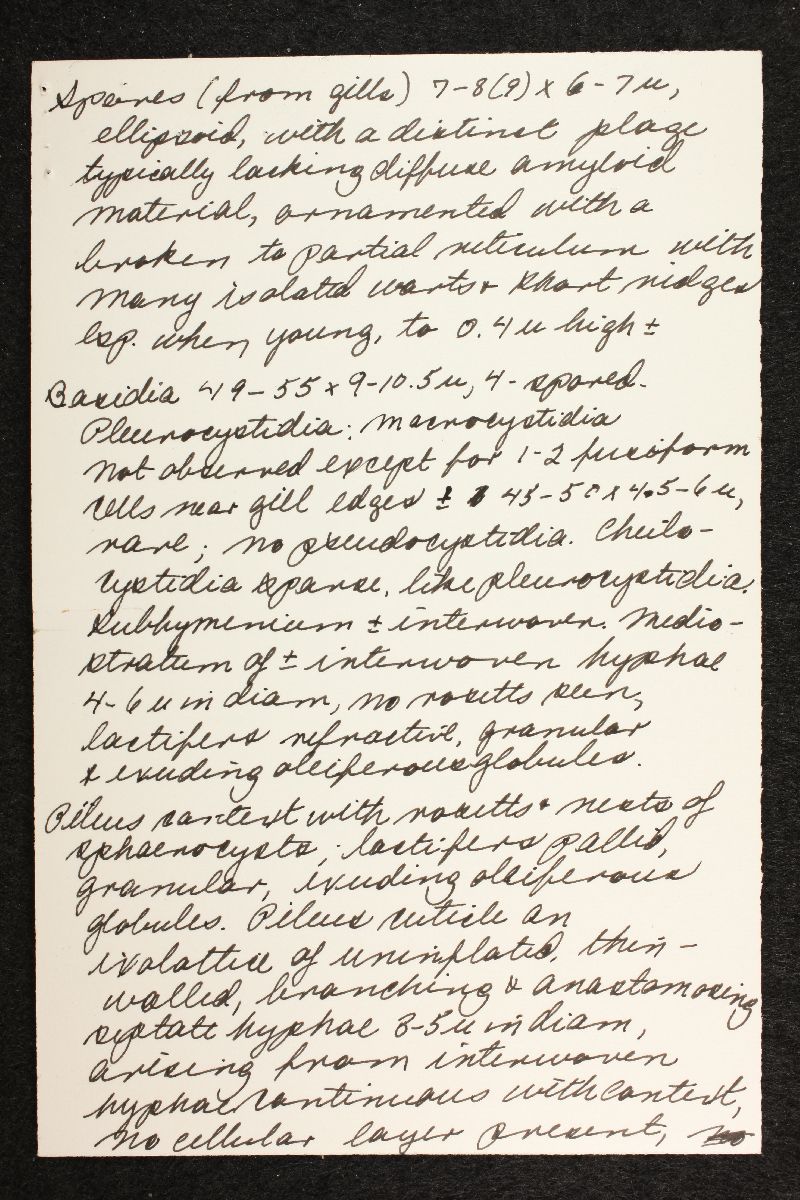 Spores (from gills) 7-8(9) x 6-7 u,
ellipsoid, with a distinct plage
typically lacking diffuse amyloid
material, ornamented with a
broken to partial reticulum with
many isolated warts & short ridges
esp. when young, to 0.4 u high ±
Basidia 49-55 x 9-10.5 u, 4-spored.
Pleurocystidia: macrocystidia
not observed except for 1-2 fusiform
cells near gill edges ± 45-50 x 4.5-6 u,
rare; no pseudocystidia. Cheilo-
cystidia sparse, like pleurocystidia.
Subhymenium ± interwoven. Medio-
stratum of ± interwoven hyphae
4-6 u in diam, no rosetts seen,
lactifers refractive, granular
& exuding oleiferous globules.
Pileus context with rosetts & nests of
sphaerocysts; lactifers pallid,
granular, exuding oleiferous
globules. Pileus cuticle an
ixolattice of uninflated, thin-
walled, branching & anastamosing
septate hyphae 3-5 u in diam,
arising from interwoven
hyphae continuous with context,
no cellular layer present,